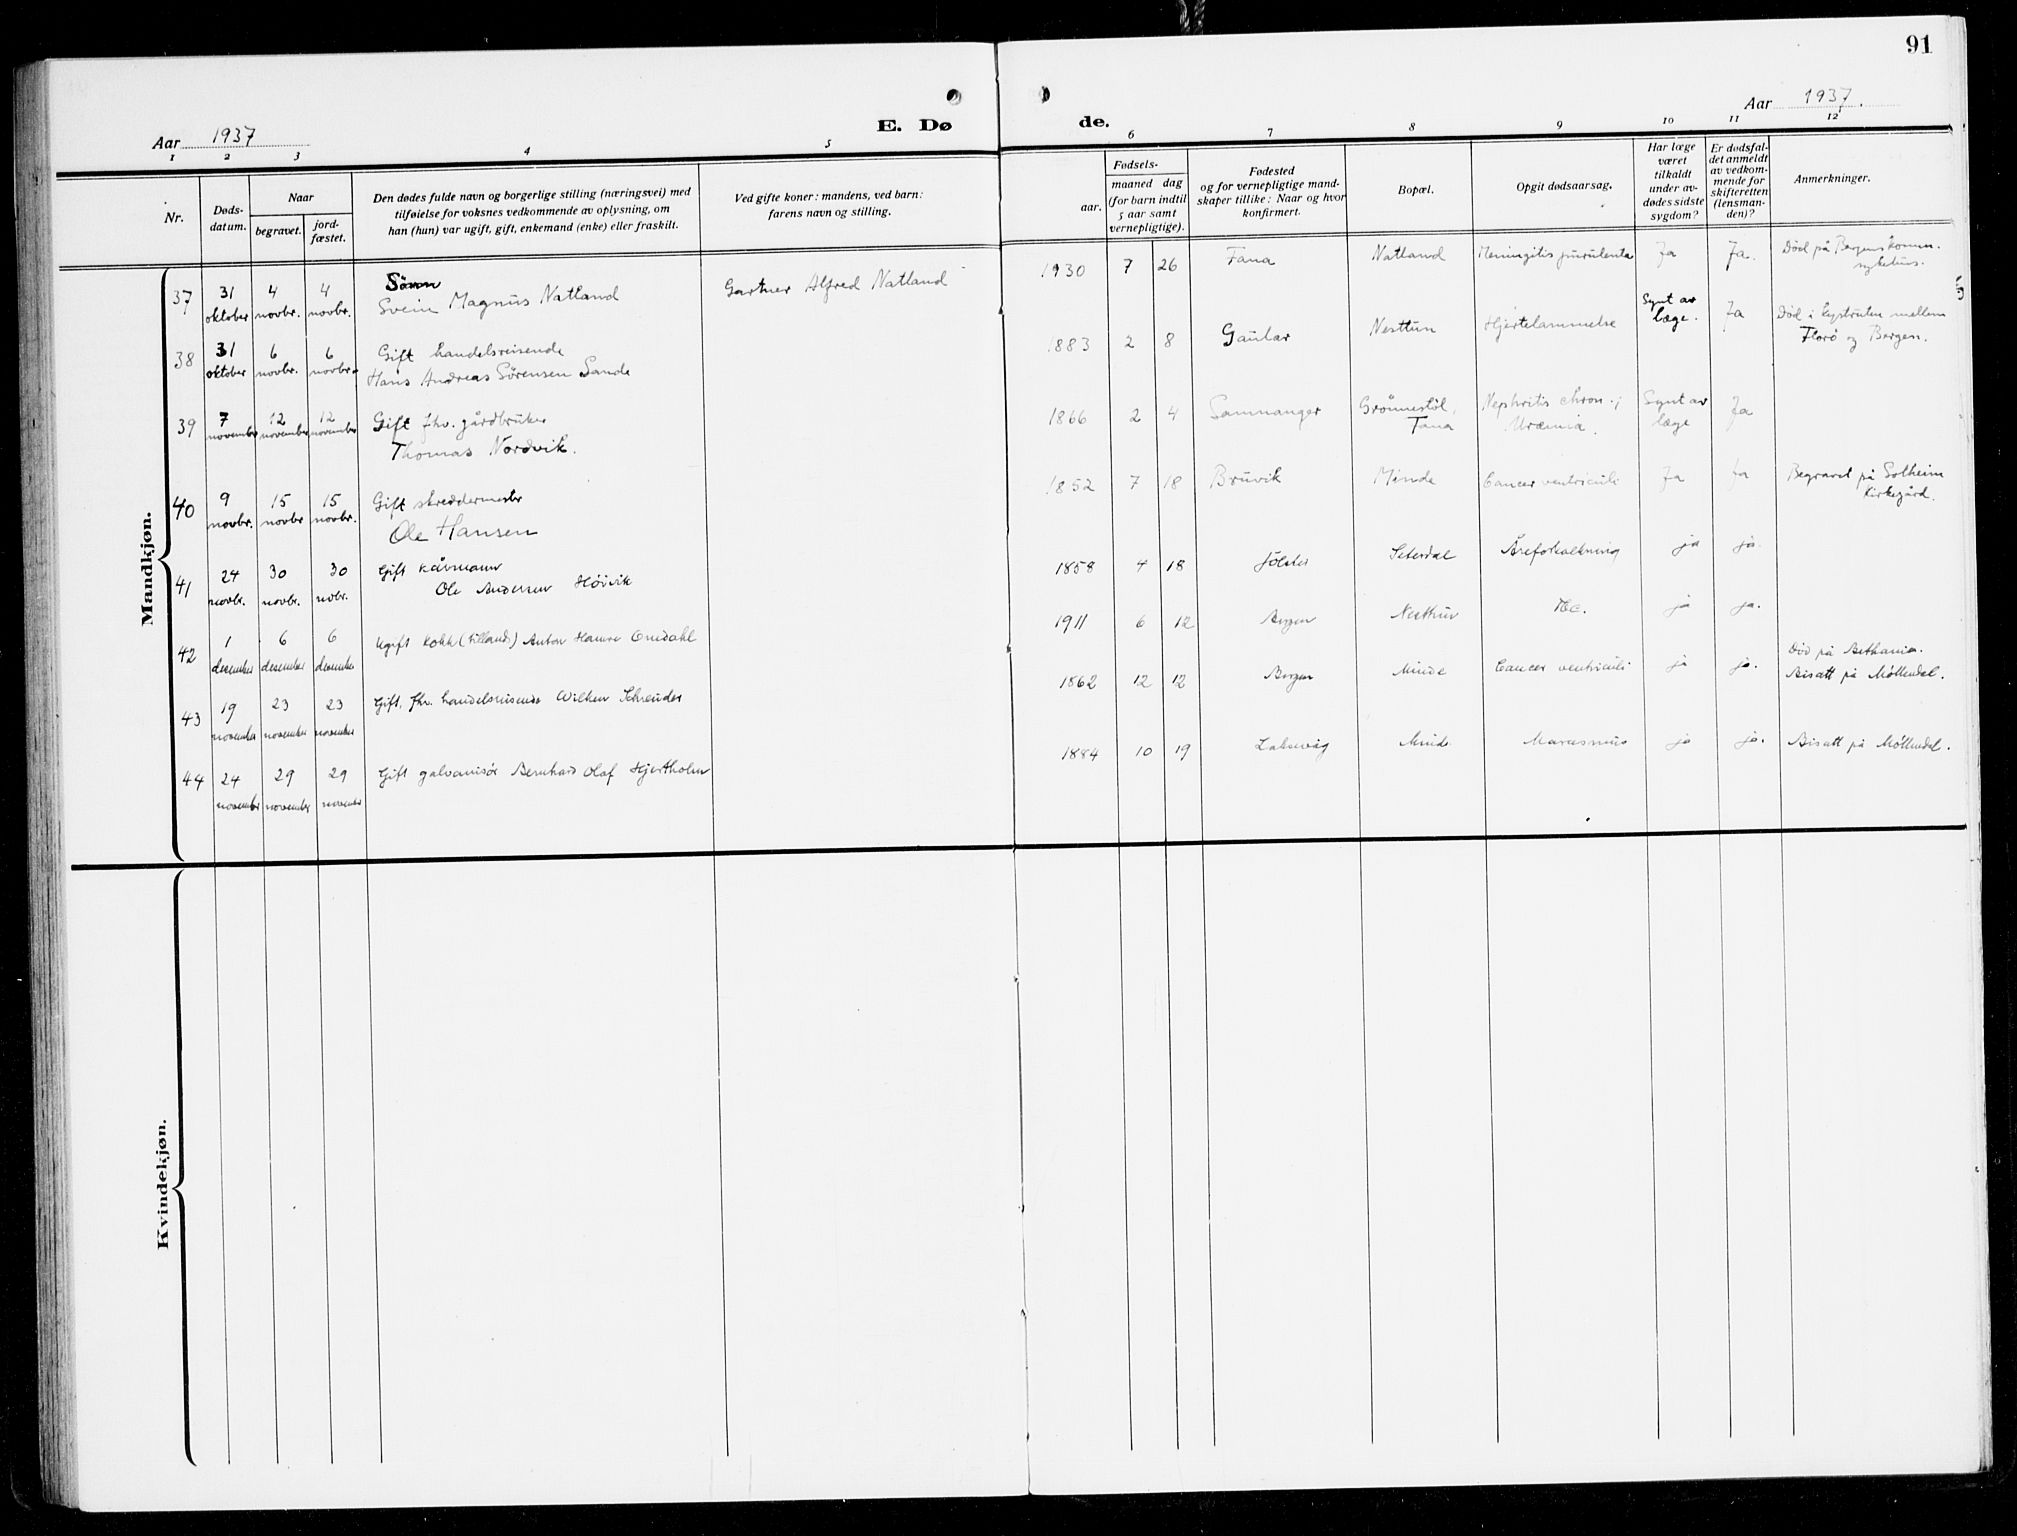 91
Aar 1937
E. Dø
de.
Aar 1937.
1 2 3 4 5 6 7 8 9 10 11 12
Nr.
Døds-
datum.
Naar
begravet.
jord-
fæstet.
Den dødes fulde navn og borgerlige stilling (næringsvei) med
tilføielse for voksnes vedkommende av oplysning, om
han (hun) var ugift, gift, enkemand (enke) eller fraskilt.
Ved gifte koner: mandens, ved barn:
farens navn og stilling.
Fødsels-
aar.
maaned dag
(for barn indtil
5 aar samt
vernepligtige).
Fødested
og for vernepligtige mand-
skaper tillike: Naar og hvor
konfirmert.
Bopæl.
Opgit dødsaarsag.
Har læge
været
tilkaldt
under av-
dødes sidste
sygdom?
Er dødsfal-
det anmeldt
av vedkom-
mende for
skifteretten
(lensman-
den)?
Anmerkninger.
Mandkjøn.
37 31 oktober 4 novbr. 4 novbr. Sønn
Svein Magnus Natland Gartner Alfred Natland 1930 7 26 Fana Natland Meningitis purulenta Ja Ja. Død på Bergens komm.
sykehus.
38 31 oktober 6 novbr. 6 novbr. Gift handelsreisende
Hans Andreas Sørensen Sande 1883 2 8 Gaular Nesttun Hjertelammelse Synt av
læge. Ja Død i hystruten mellem
Florø og Bergen.
39 7 november 12 november 12 november Gift fhv. gårdbruker
Thomas Nordvik. 1866 2 4 Samnanger Grønnestøl,
Fana Nephritis chron.;
Uræmia. Synt av
læge Ja
40 9 novbr. 15 novbr 15 novbr. Gift skreddermester
Ole Hansen 1852 7 18 Bruvik Minde Cancer ventriculi Ja Ja Begravet på Solheim
kirkegård.
41 24 novbr. 30 novbr. 30 novbr. Gift kårmann
Ole Andersen Høivik 1858 4 18 Jølster Seterdal Åreforkalkning ja ja.
42 1 desember 6 desember 6 desember Ugift kokk (tillands) Anton Hamre 1911 6 12 Bergen Nesttun Tbc. ja ja.
43 19 november 23 november 23 november Gift, fhv. handelsreisende Wilken Schreuder 1862 12 12 Bergen Minde Cancer ventriculi ja ja. Død på Bethania.
Bisatt på Møllendal.
44 24 november 29 november 29 november Gift galvanisør Bernhard Olaf Hjertholm 1884 10 19 Laksevåg Minde Marasmus ja ja. Bisatt på Møllendal.
Kvindekjøn.